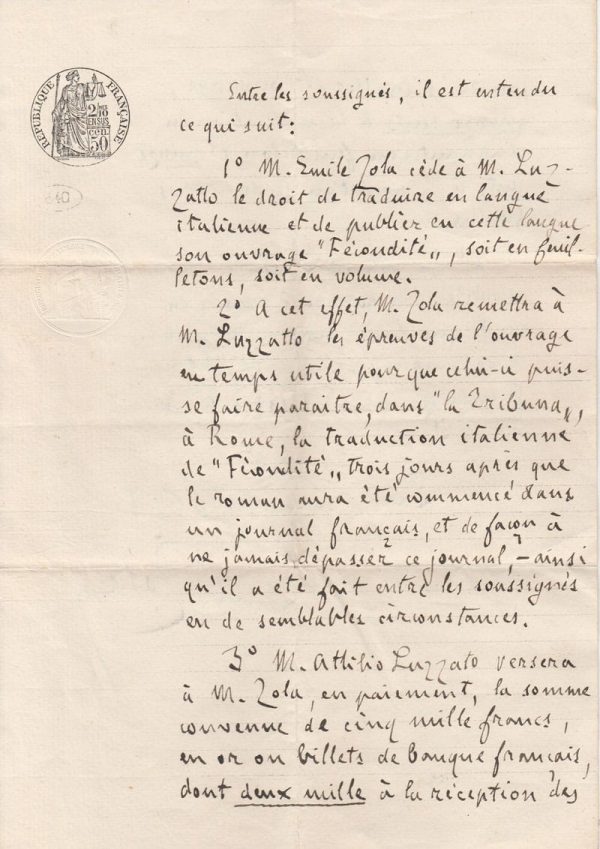 RÉPUBLIQUE FRANÇAISE
2/10
EN SUS
50
Entre les soussignés, il est entendu
ce qui suit:
1º M. Emile Zola cède à M. Luz-
zatto le droit de traduire en langue
italienne et de publier en cette langue
son ouvrage "Fécondité„, soit en feuil-
letons, soit en volume.
2º A cet effet, M. Zola remettra à
M. Luzzatto les épreuves de l'ouvrage
en temps utile pour que celui-ci puis-
se faire paraitre, dans "la Tribuna„,
à Rome, la traduction italienne
de "Fécondité„ trois jours après que
le roman aura été commencé dans
un journal français, et de façon à
ne jamais dépasser ce journal, - ainsi
qu'il a été fait entre les soussignés
en de semblables circonstances.
3º M. Attilio Luzzato versera
à M. Zola, en paiement, la somme
convenue de cinq mille francs,
en or ou billets de banque français,
dont deux mille à la réception des